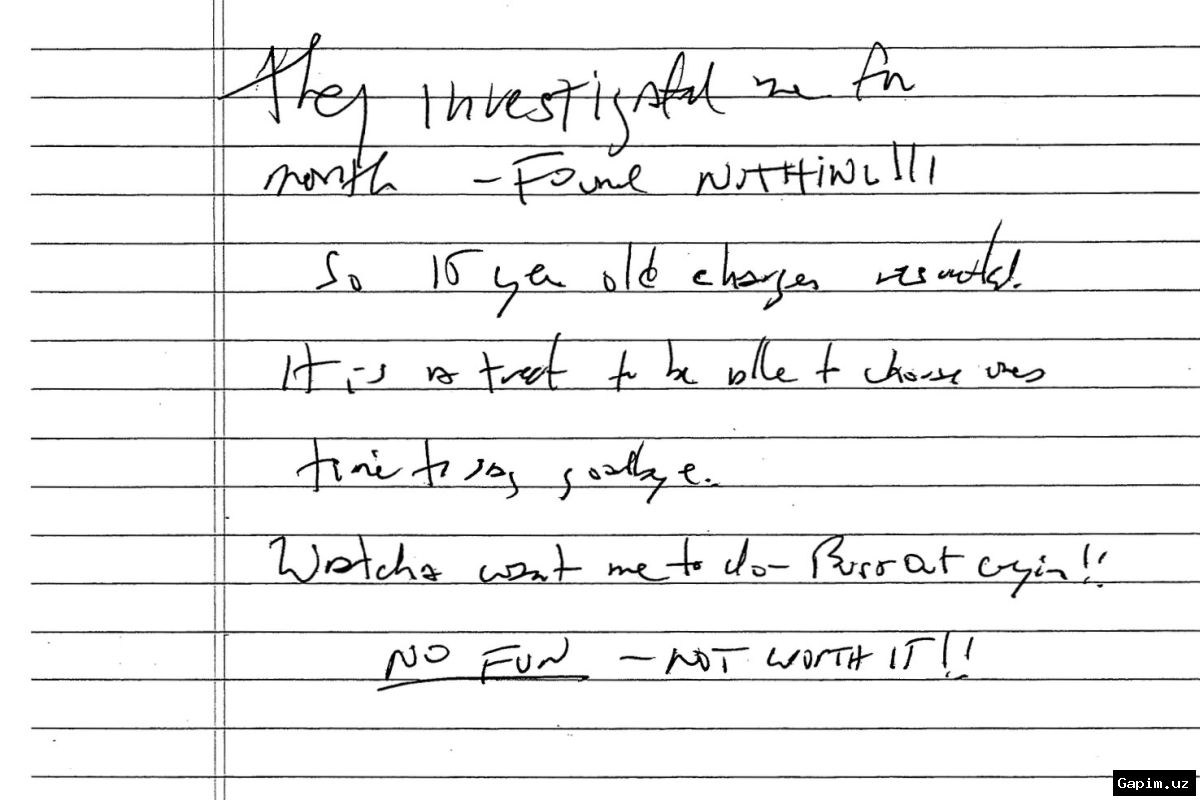 They investigated me for
month — Found NOTHING!!!
So 15 year old charges resulted.
It is a treat to be able to choose ones
time to say goodbye.
Watcha want me to do — Burst out cryin!!
NO FUN — NOT WORTH IT!!
Gapim.uz